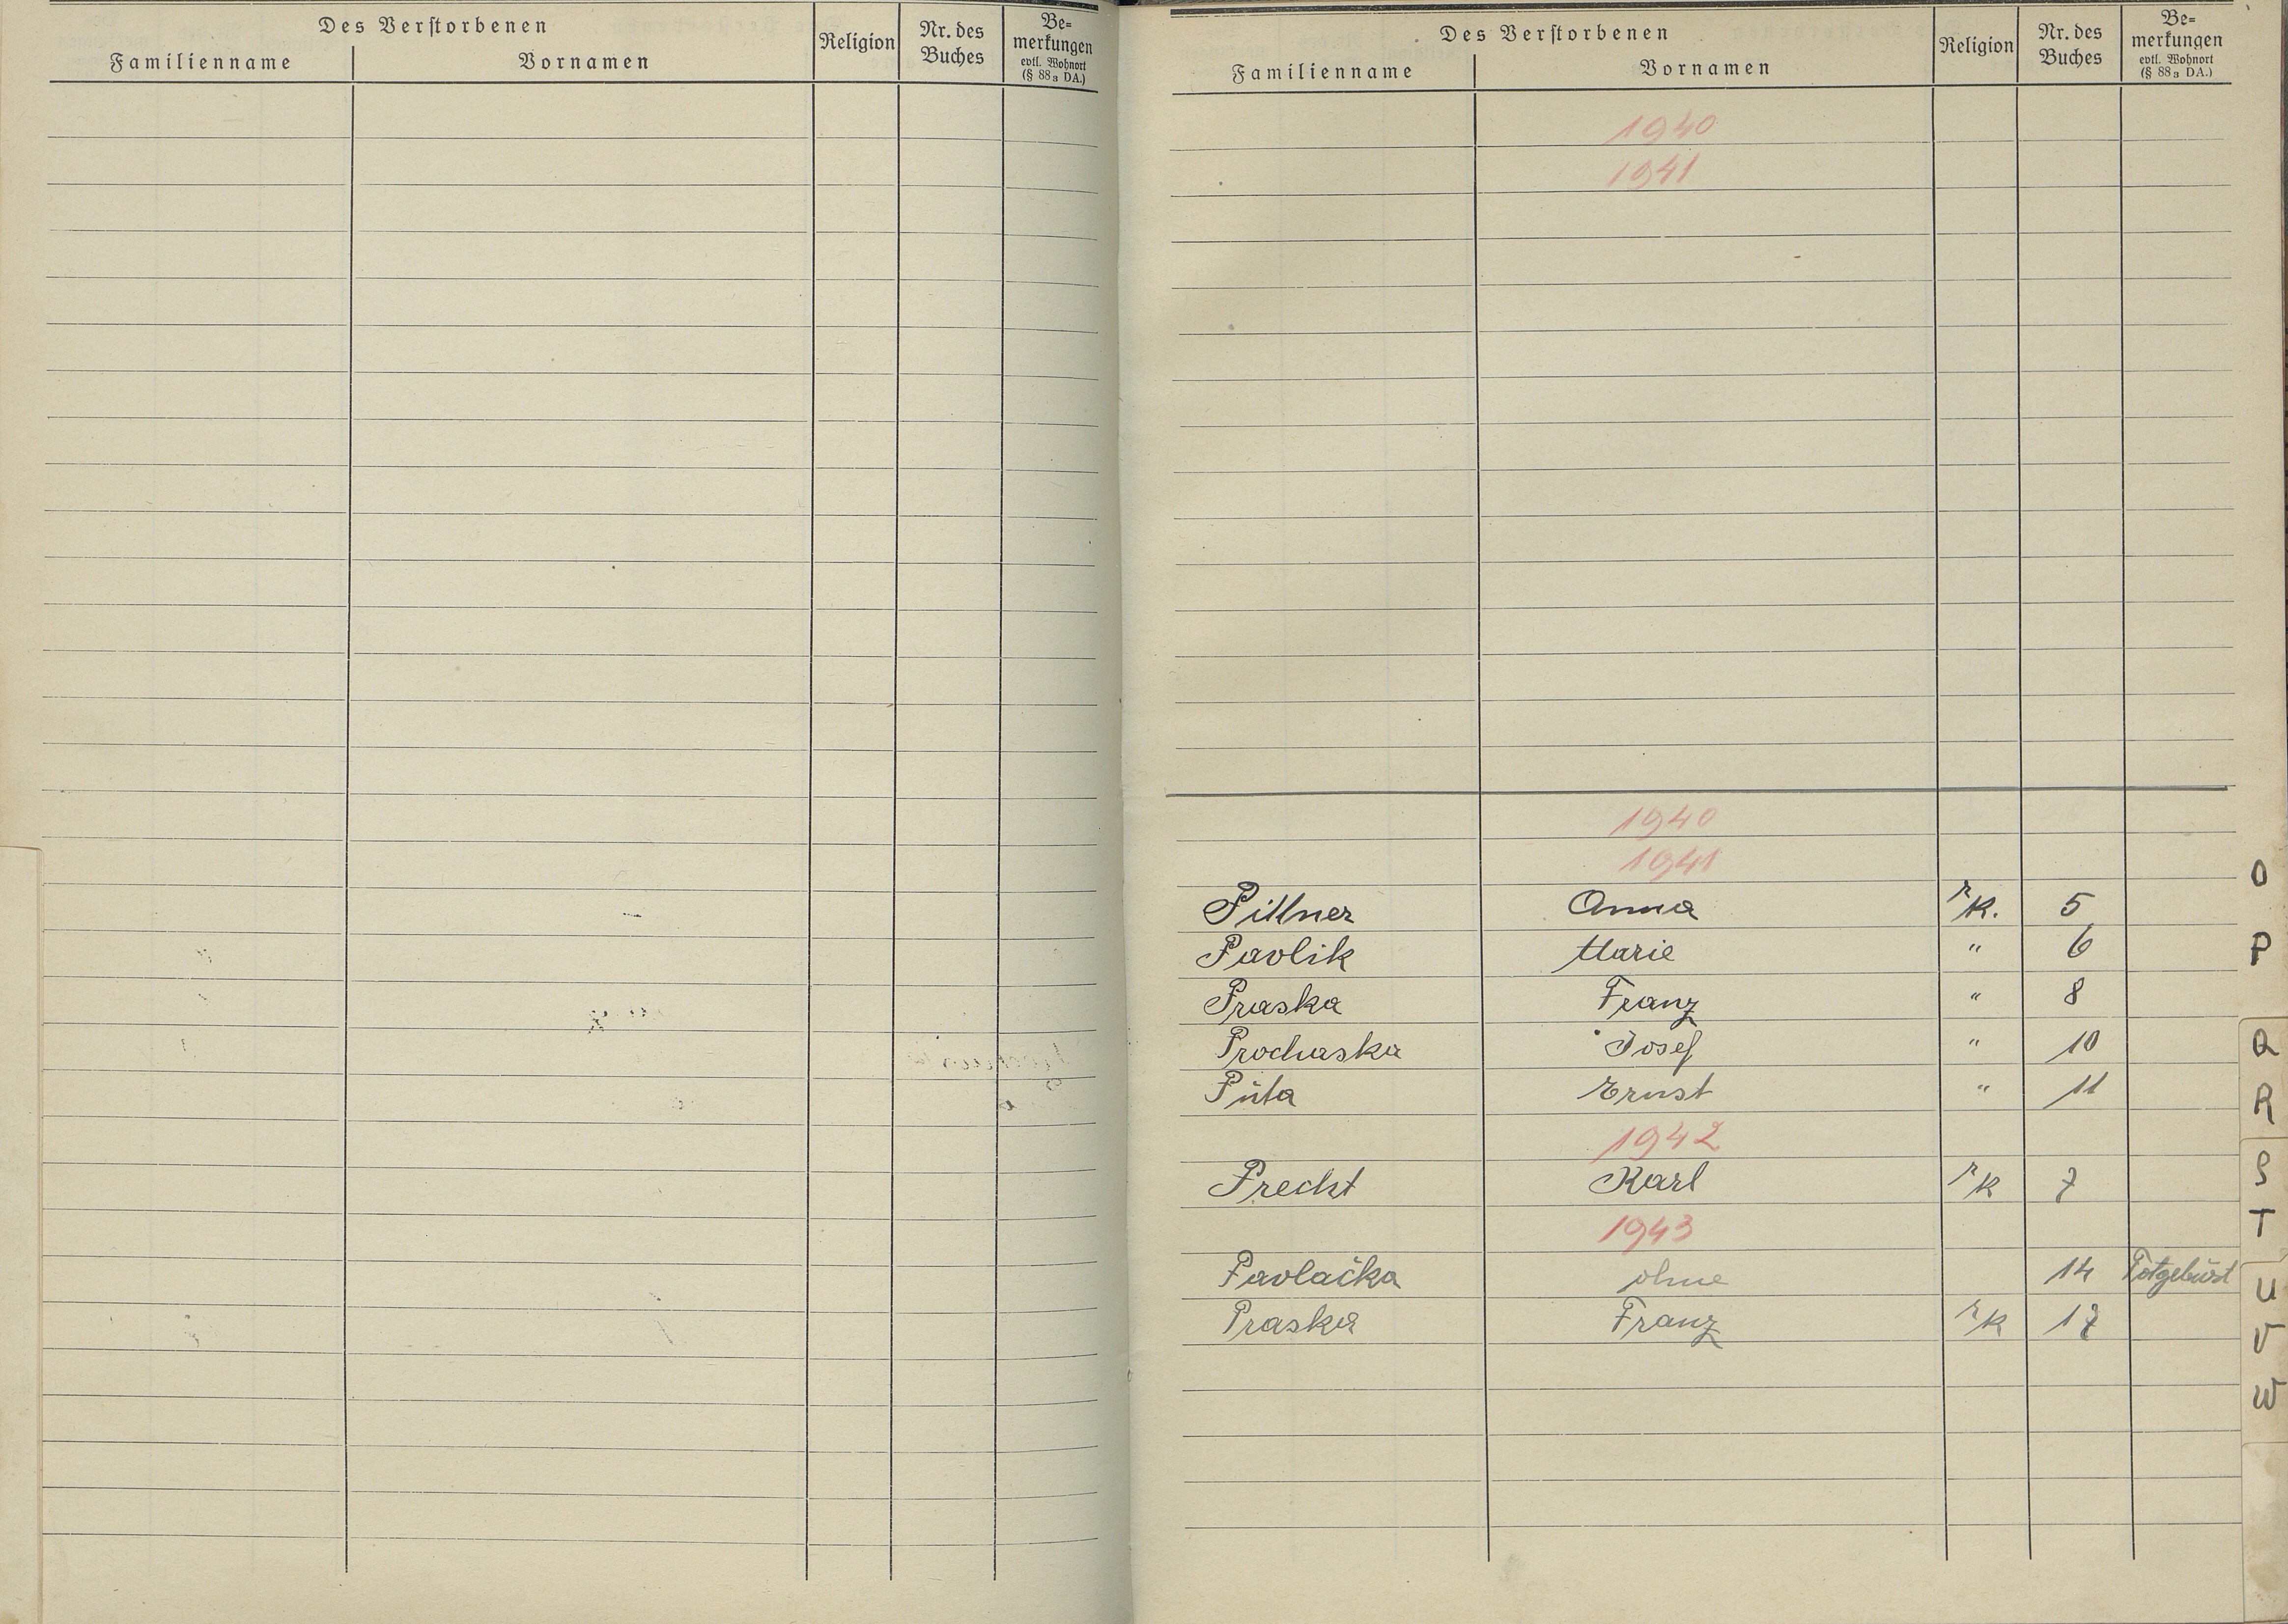 Des Verstorbenen
Familienname Vornamen Religion Nr. des Buches Be-merkungen evtl. Wohnort (§ 88₃ DA.)
Des Verstorbenen
Familienname Vornamen Religion Nr. des Buches Be-merkungen evtl. Wohnort (§ 88₃ DA.)
1940
1941
1940
1941
Pillner Anna r/k. 5
Pavlik Marie " 6
Praska Franz " 8
Prochaska Josef " 10
Půta Ernst " 11
1942
Precht Karl r/k 7
1943
Pavlačka ohne 14 Totgeburt
Praska Franz r/k 17
O
P
Q
R
S
T
U
V
W